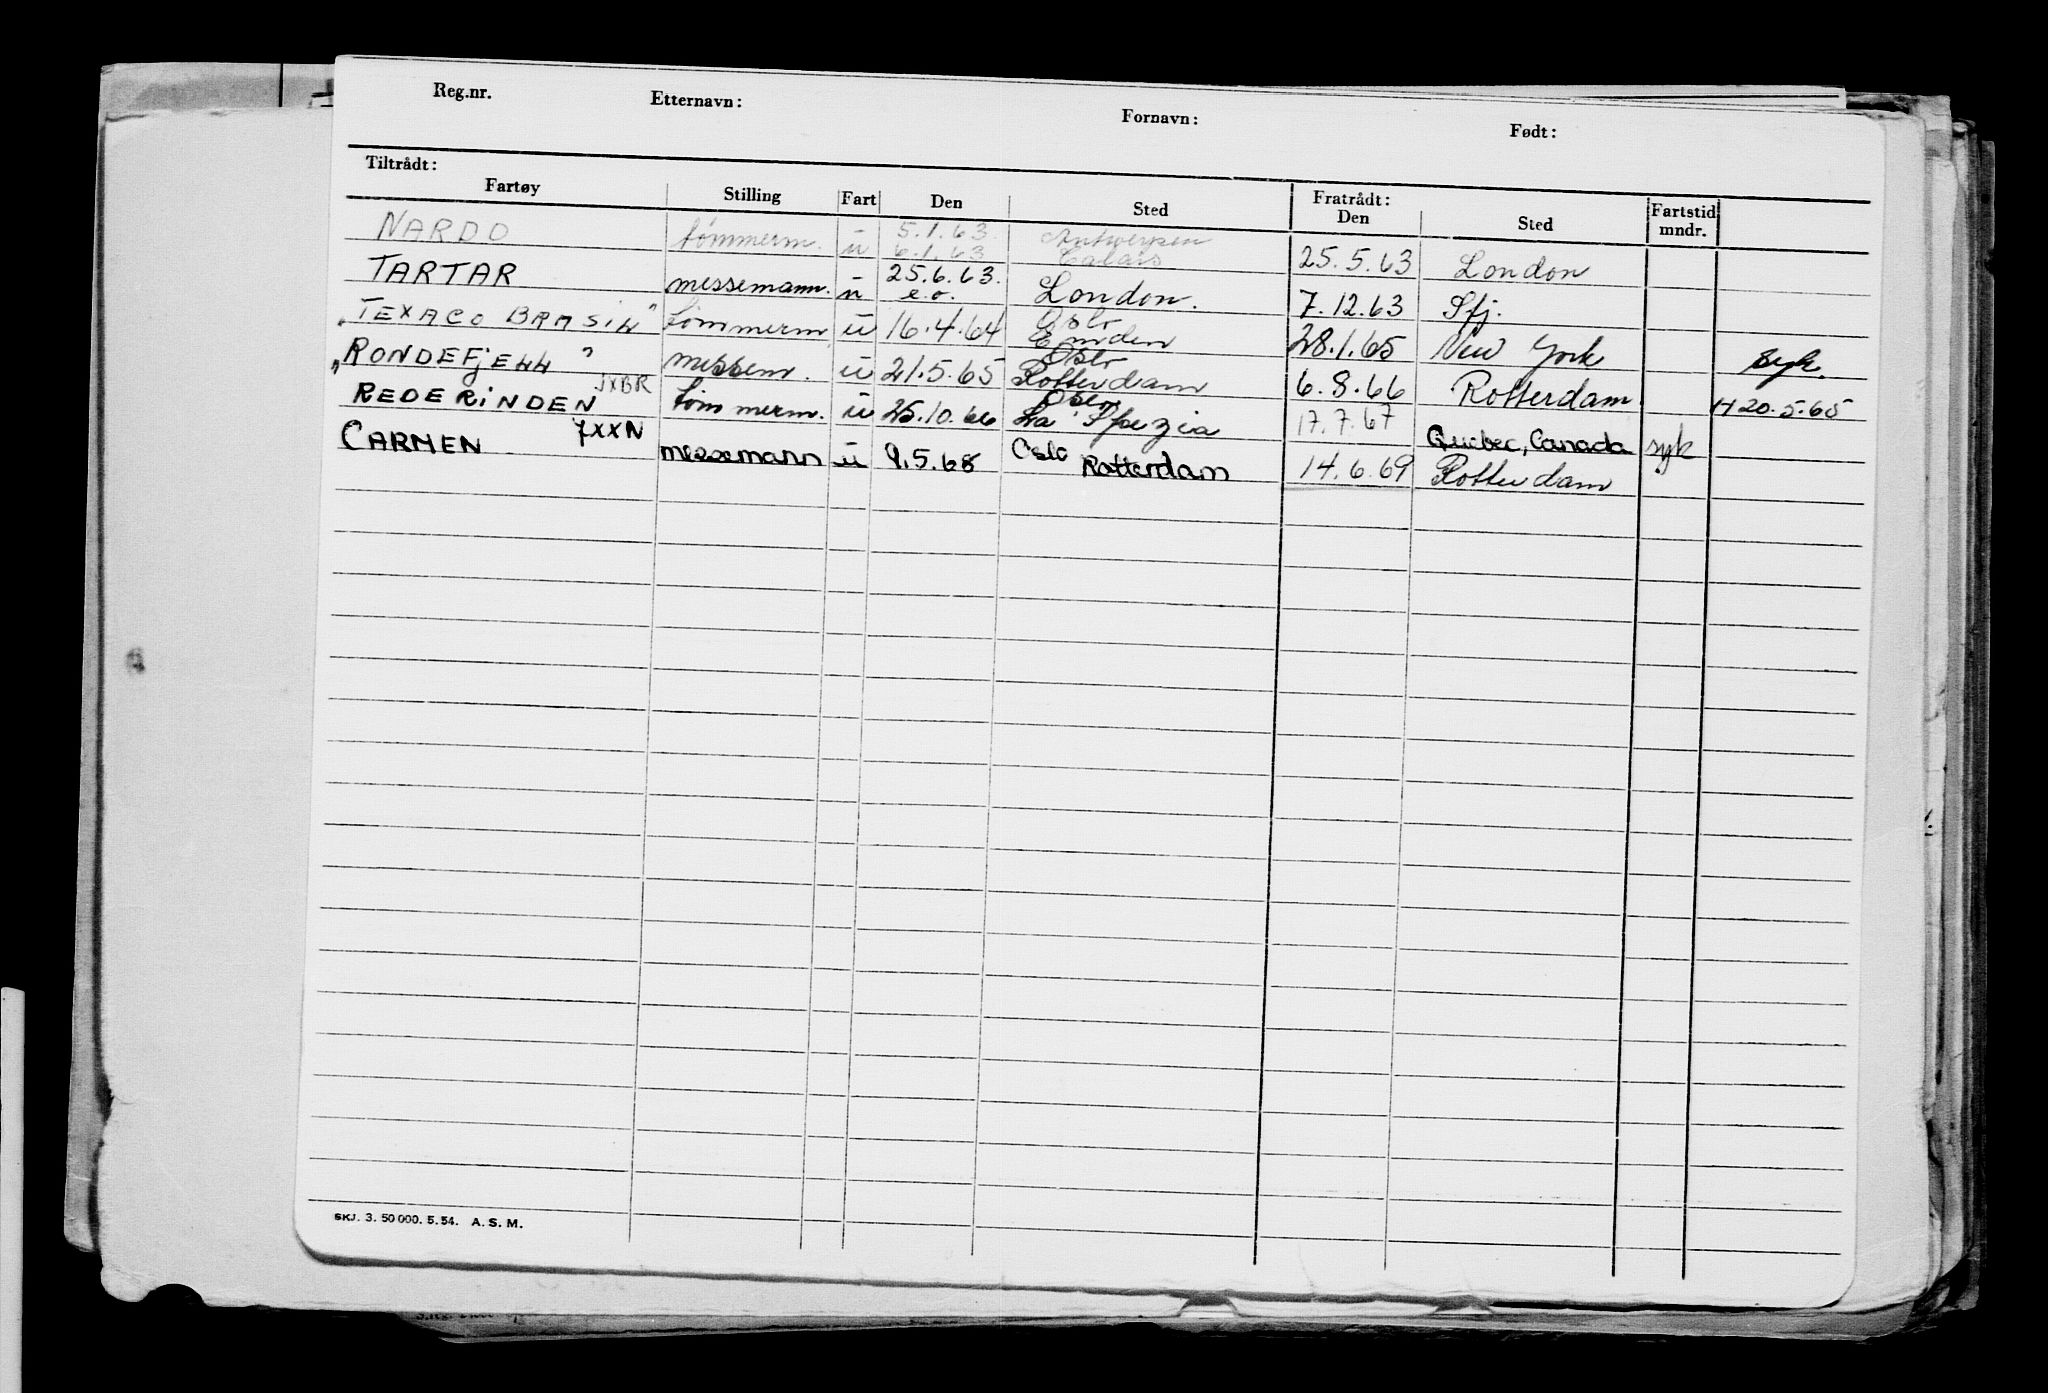 Reg.nr. Etternavn: Fornavn: Født:
Tiltrådt:
Fartøy Stilling Fart Den Sted Fratrådt: Den Sted Fartstid mndr.
NARDO tømmerm. u 5.1.63. 6.1.63 Antwerpen Calais 25.5.63 London
TARTAR messemann. u 25.6.63. e.o. London. 7.12.63 Sfj.
"TEXACO BRASIL" tømmerm u 16.4.64 Oslo Emden 28.1.65 New York syk.
"RONDEFJELL" messem. u 21.5.65 Oslo Rotterdam 6.8.66 Rotterdam H 20.5.65
REDERINDEN JXBR tømmerm. u 25.10.66 Oslo La Spezia 17.7.67 Quebec, Canada syk
CARMEN JXXN messemann u 9.5.68 Oslo Rotterdam 14.6.69 Rotterdam
SKJ. 3. 50 000. 5.54. A. S. M.